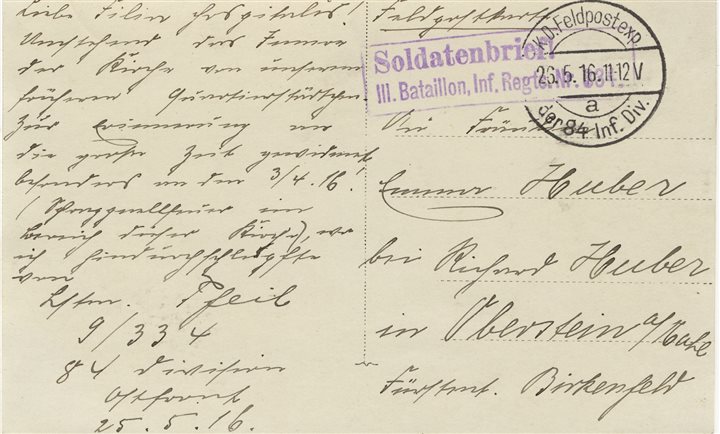 Liebe Filia hospitalis!
Umstehend das Innere
der Kirche von unserem
früheren Quartierstädtchen.
Zur Erinnerung an
die große Zeit gewidmet,
besonders an den 3/4.16.
(Sperrquellfeuer im
Bereich dieser Kirche), wo
ich hindurchschlüpfte
von
Lstm. Pfeil
9/334
84 Division
Ostfront
25.5.16.
Feldpostkarte
Soldatenbrief!
III. Bataillon, Inf. Regt. Nr. 334.
K.D. Feldpostexp.
25.5.16. 11-12 V
a
der 84. Inf. Div.
An Fräulein
Emma Huber
bei Richard Huber
in Oberstein a/Nahe
Fürstent. Birkenfeld